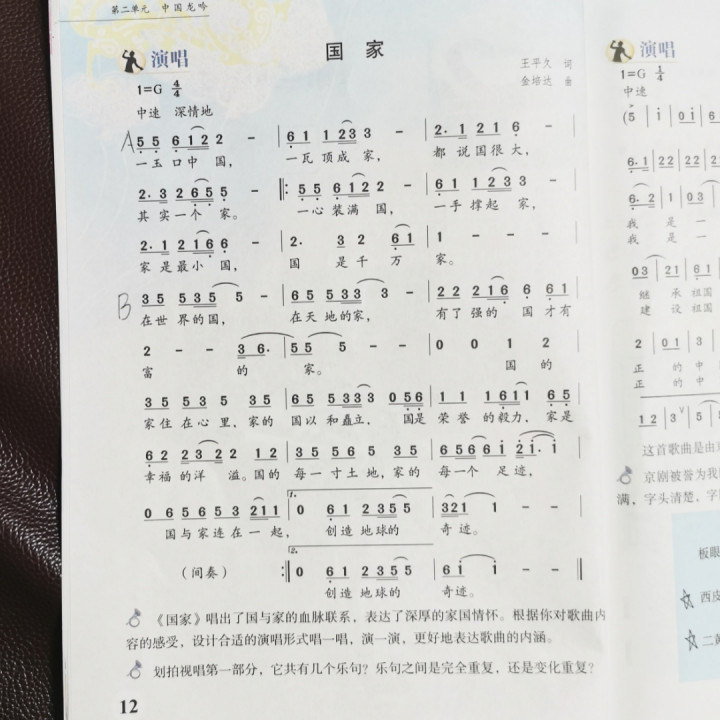 第二单元 中国龙吟
演唱
国 家
1=G 4/4
王平久 词
金培达 曲
中速 深情地
A 5 5 6 1 2 2 - | 6 1 1 2 3 3 - | 2. 1 2 1 6 - |
一玉口中 国, 一瓦顶成 家, 都 说国很大,
2. 3 2 6 5 5 - ‖: 5 5 6 1 2 2 - | 6 1 1 2 3 3 - |
其 实一个 家。 一心装满 国, 一手撑起 家,
2. 1 2 1 6 6 - | 2. 3 2 6 1 | 1 - - - |
家 是最小 国, 国 是千 万 家。
B 3 5 5 3 5 5 - | 6 5 5 3 3 3 - | 2 2 2 1 6 6 6 1 |
在世 界的国, 在天地的家, 有了强的 国 才有
2 - - 3 6. | 5 5 5 - - | 0 0 1 2 |
富 的 家。 国 的
3 5 5 3 5 3 5 3 5 | 6 5 5 3 3 3 0 5 6 | 1 1 1 6 1 1 6 5 |
家住在心里,家的 国以和矗立, 国是 荣誉的毅力,家是
6 2 2 3 2 2 1 2 | 3 5 5 6 5 3 5 | 6 5 6 6 i 2 i. i |
幸福的洋 溢。国的 每一寸土地,家的 每一个 足迹,
0 6 5 6 5 5 3 2 1 1 | 1. 0 6 1 2 3 5 5 | 3 2 1 1 - |
国与家连在一起, 创造地球的 奇迹。
(间奏) :‖ 2. 0 6 1 2 3 5 5 | 6 i i - ‖
创造地球的 奇迹。
《国家》唱出了国与家的血脉联系,表达了深厚的家国情怀。根据你对歌曲内
容的感受,设计合适的演唱形式唱一唱,演一演,更好地表达歌曲的内涵。
划拍视唱第一部分,它共有几个乐句?乐句之间是完全重复,还是变化重复?
12
演唱
1=G 1/4
中速
我 是 一
我 是 一
继 承 祖国
建 设 祖国
正 的 中
正 的 中
这首歌曲是由
京剧被誉为我
满,字头清楚,字
板眼
西皮
二黄